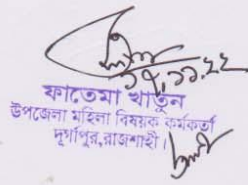 ১৭.১১.২২
ফাতেমা খাতুন
উপজেলা মহিলা বিষয়ক কর্মকর্তা
দূর্গাপুর,রাজশাহী।